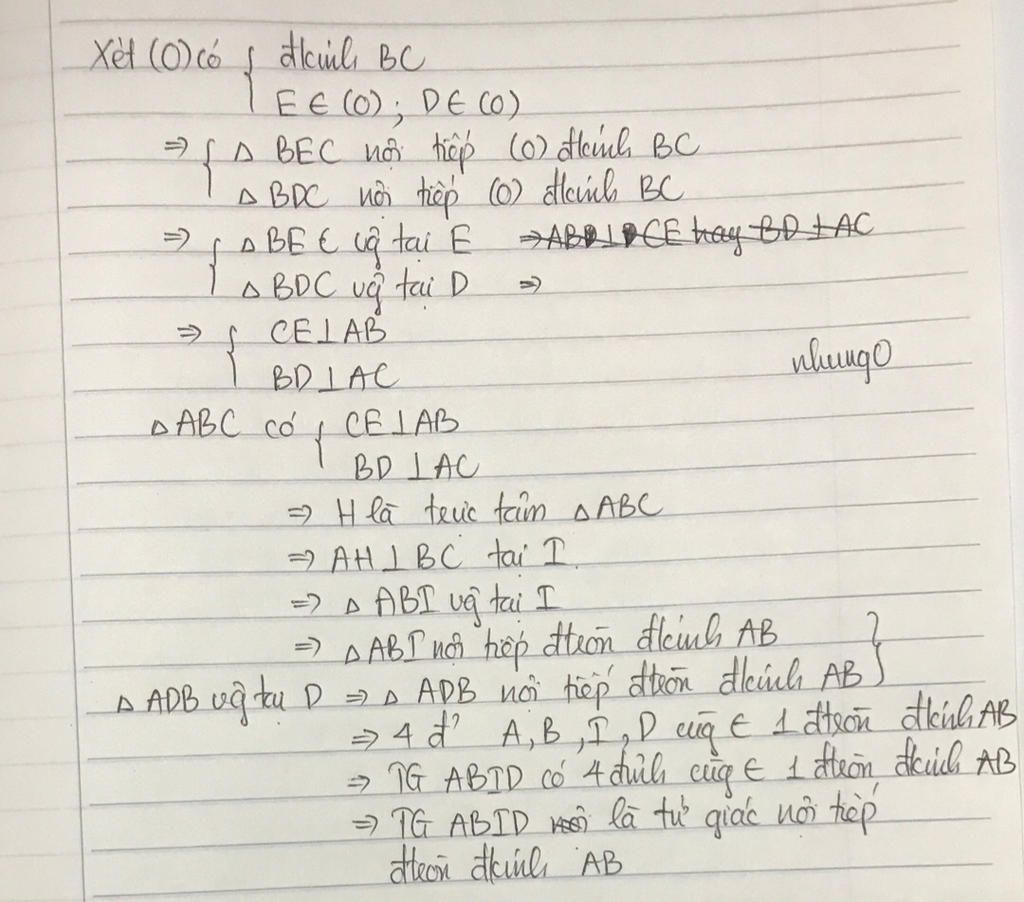 Xét (O) có { đkính BC
E ∈ (O) ; D ∈ (O)
⇒ { △ BEC nội tiếp (O) đkính BC
△ BDC nội tiếp (O) đkính BC
⇒ { △ BEC vg̃ tại E ⇒ hay BD ⊥ AC
△ BDC vg̃ tại D ⇒
⇒ { CE ⊥ AB
BD ⊥ AC
nhung0
△ ABC có { CE ⊥ AB
BD ⊥ AC
⇒ H là trực tâm △ ABC
⇒ AH ⊥ BC tại I
⇒ △ ABI vg̃ tại I
⇒ △ ABI nội tiếp đtròn đkính AB }
△ ADB vg̃ tại D ⇒ △ ADB nội tiếp đtròn đkính AB
⇒ 4 đ' A, B, I, D cùg ∈ 1 đtròn đkính AB
⇒ TG ABID có 4 đỉnh cùg ∈ 1 đtròn đkính AB
⇒ TG ABID là tứ giác nội tiếp
đtròn đkính AB